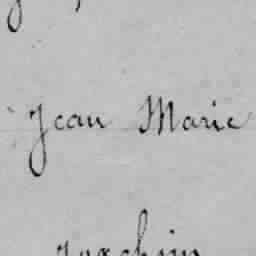 Jean Marie
Joachim